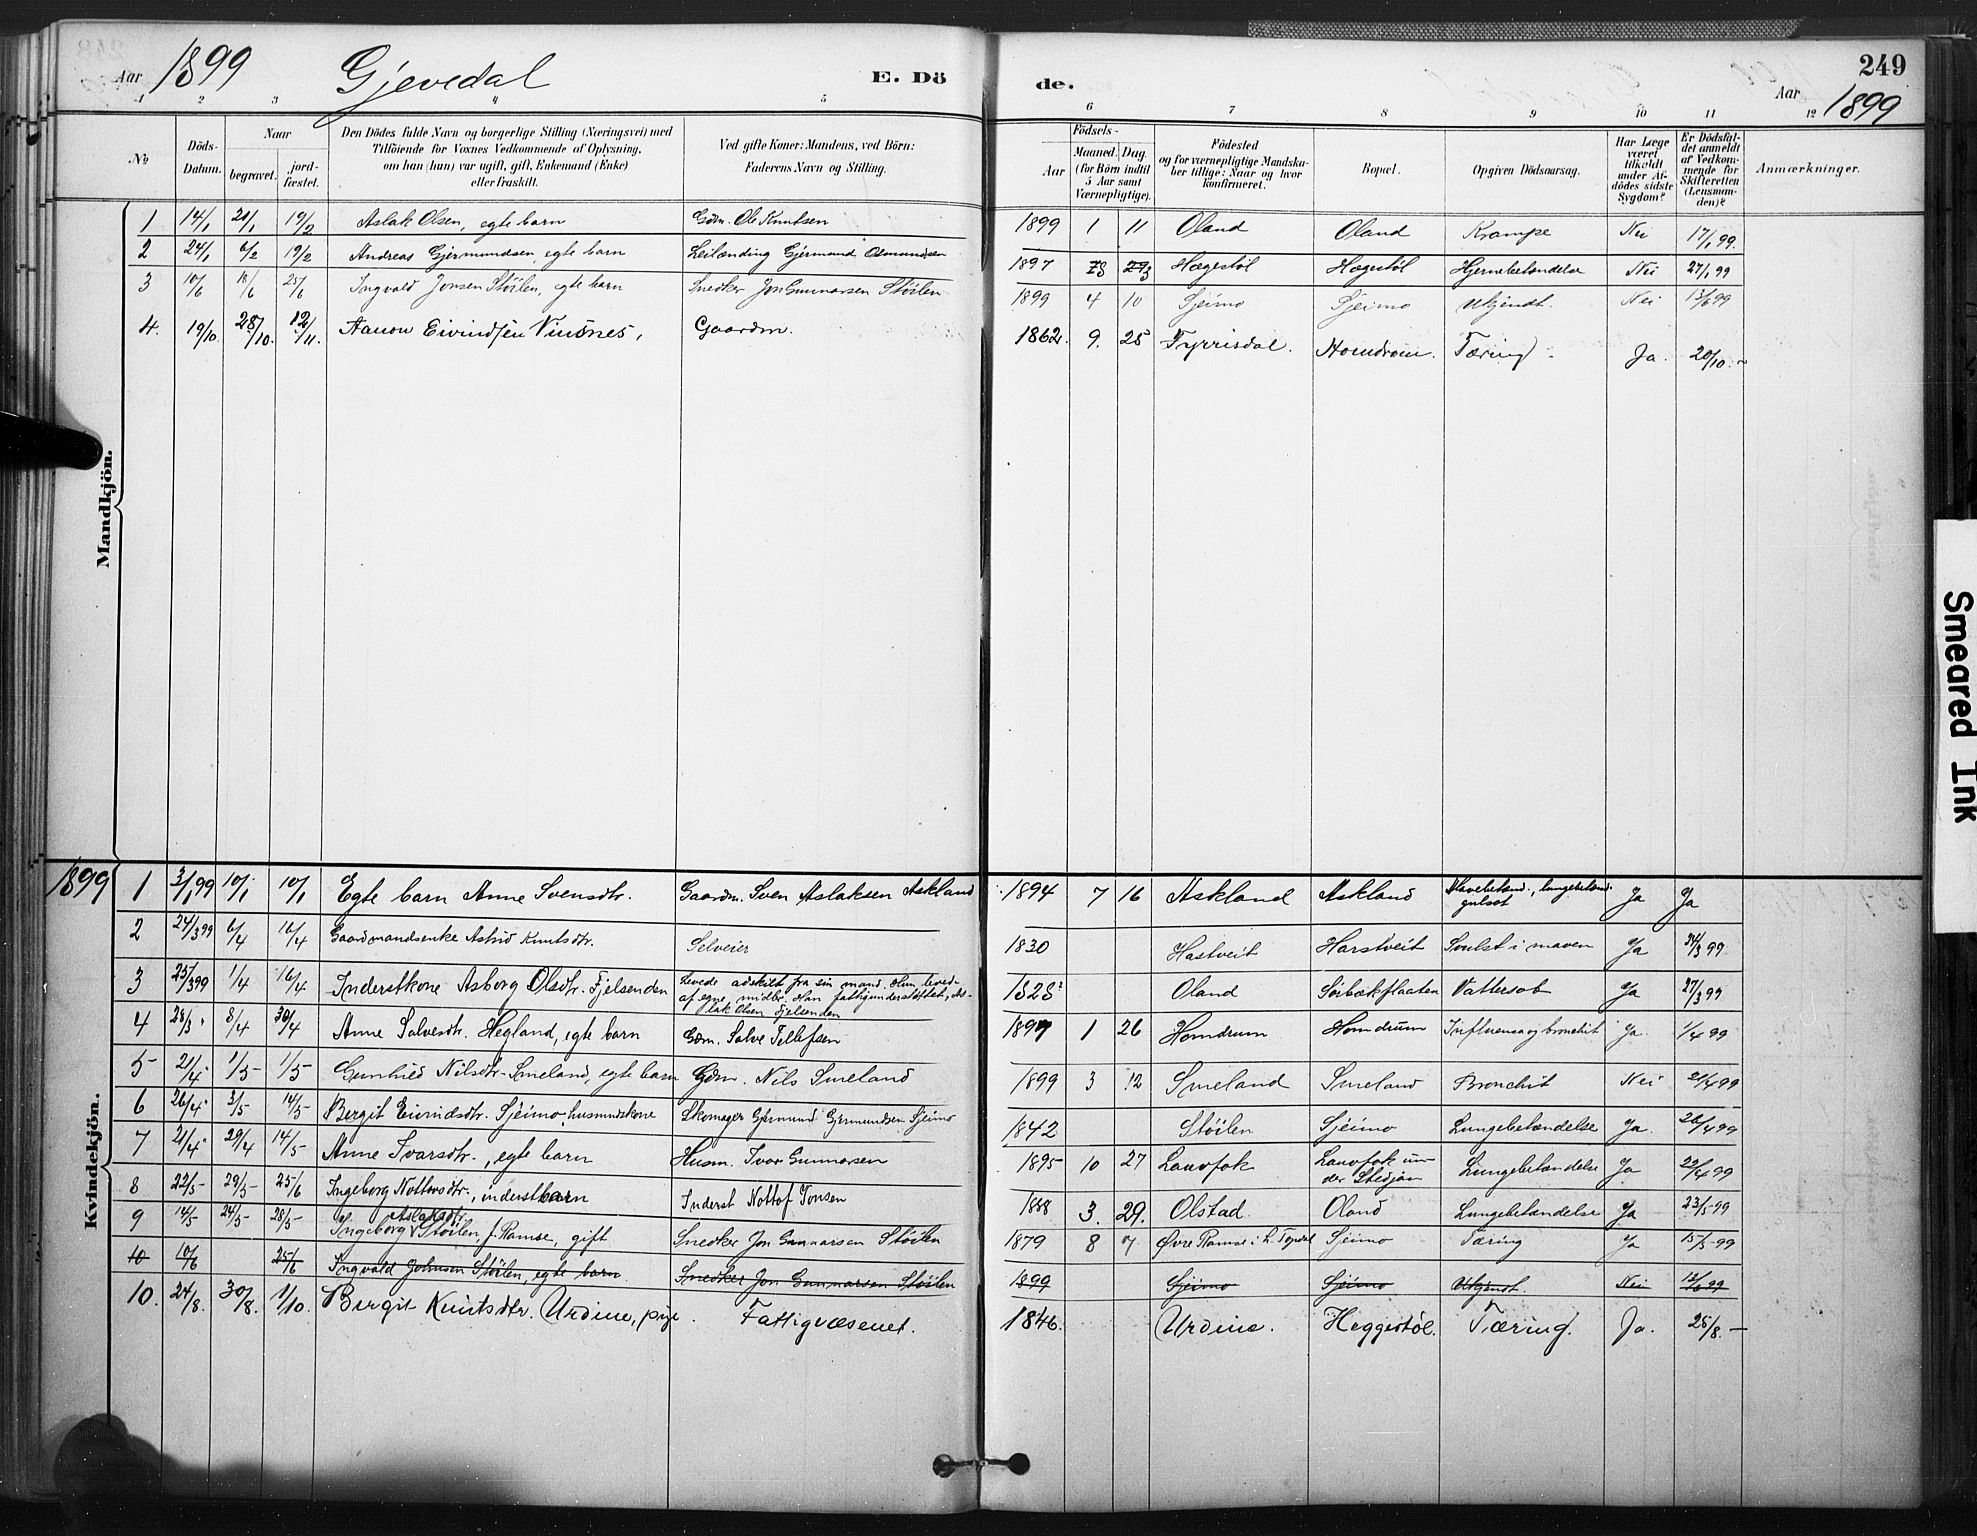 Aar 1899 Gjevedal E. Dö de. Aar 1899 249
1 2 3 4 5 6 7 8 9 10 11 12
No
Döds-Datum.
Naar
begravet.
jord-fæstet.
Den Dödes fulde Navn og borgerlige Stilling (Næringsvei) med
Tilföiende for Voxnes Vedkommende af Oplysning,
om han (hun) var ugift, gift, Enkemand (Enke)
eller fraskilt.
Ved gifte Koner: Mandens, ved Börn:
Faderens Navn og Stilling.
Födsels-
Aar
Maaned. Dag.
(for Börn indtil
5 Aar samt
Værnepligtige).
Födested
og for værnepligtige Mandska-
ber tillige: Naar og hvor
konfirmeret.
Bopæl.
Opgiven Dödsaarsag.
Har Læge
været
tilkaldt
under Af-
dödes sidste
Sygdom?
Er Dödsfal-
det anmeldt
af Vedkom-
mende for
Skifteretten
(Lensman-
den)?
Anmærkninger.
Mandkjön.
1 14/1 21/1 19/2 Aslak Olsen, egte barn Gdm. Ole Knutsen 1899 1 11 Oland Oland Krampe Nei 17/1 99.
2 24/1 6/2 19/2 Andreas Gjermundsen, egte barn Leilænding Gjermund Osmundsen 1897 Hægestöl Hægestöl Hjernebetændelse Nei 27/1 99
3 10/6 18/6 25/6 Ingvald Jonsen Stöilen, egte barn Snedker Jon Gunnarsen Stöilen 1899 4 10 Sjeimo Sjeimo Ukjendt. Nei 13/6 99
4. 19/10 28/10. 12/11. Aanon Eivindsen Vinsnes, Gaardm. 1862. 9. 25 Fyrrisdal. Homdrom. Tæring. Ja. 20/10.
1899
Kvindekjön.
1 3/1 99 10/1 10/1 Egte barn Anne Svensdtr. Gaardm. Sven Aslaksen Askland 1894 7 16 Askland Askland Mavebetænd., lungebetænd. gulsot Ja Ja
2 24/3 99 6/4 16/4 Gaardmandsenke Astrid Knutsdtr. Selveier 1830 Hastveit Harstveit Svulst i maven Ja 24/3 99
3 25/3 99 1/4 16/4 Inderstkone Asborg Olsdtr. Fjelsenden Levede adskilt fra sin mand. Hun leved- af egne midler. Han fattigunderstöttet, As- lak Olsen Fjelsenden 1828 Oland Sörbækflaaten Vattersot Ja 27/3 99
4 28/3 8/4 30/4 Anne Salvesdtr. Hegland, egte barn Gdm. Salve Tellefsen 1897 1 26 Homdrum Homdrum Influensa og bronchit Ja. 1/4 99
5 21/4 1/5 1/5 Gunhild Nilsdtr. Smeland, egte barn Gdm. Nils Smeland 1899 3 12 Smeland Smeland Bronchit Nei 21/4 99
6 26/4 3/5 14/5 Bergit Eivindsdtr. Sjeimo, husmandskone Skomager Gjermund Gjermundsen Sjeimo 1842 Stöilen Sjeimo Lungebetændelse Ja. 26/4 99
7 21/4 29/4 14/5 Anne Ivarsdtr., egte barn Husm. Ivar Gunnarsen 1895 10 27 Lauvfok Lauvfok un- der Stedjan Lungebetændelse Ja 22/4 99
8 22/5 29/5 25/6 Ingeborg Nottovsdtr., inderstbarn Inderst Nottof Tonsen 1888 3. 29. Olstad Oland Lungebetændelse Ja 23/5 99
9 14/5 24/5 28/5 Ingeborg Aslaksdtr. Stöilen f. Ramse, gift Snedker Jon Gunnarsen Stöilen 1879 8 7 Övre Ramse i h. Topdal Sjeimo Tæring Ja 15/5 99
10 10/6 25/6 Ingvald Johnsen Stöilen, egte barn. Snedker Jon Gunnarsen Stöilen 1899 Sjeimo Sjeimo Ukjendt. Nei 13/6 99
10. 24/8. 30/8. 1/10. Birgit Knutsdtr. Urdine, pige. Fattigvæsenet. 1846. Urdine. Heggestöl. Tæring. Ja. 25/8.
Smeared Ink